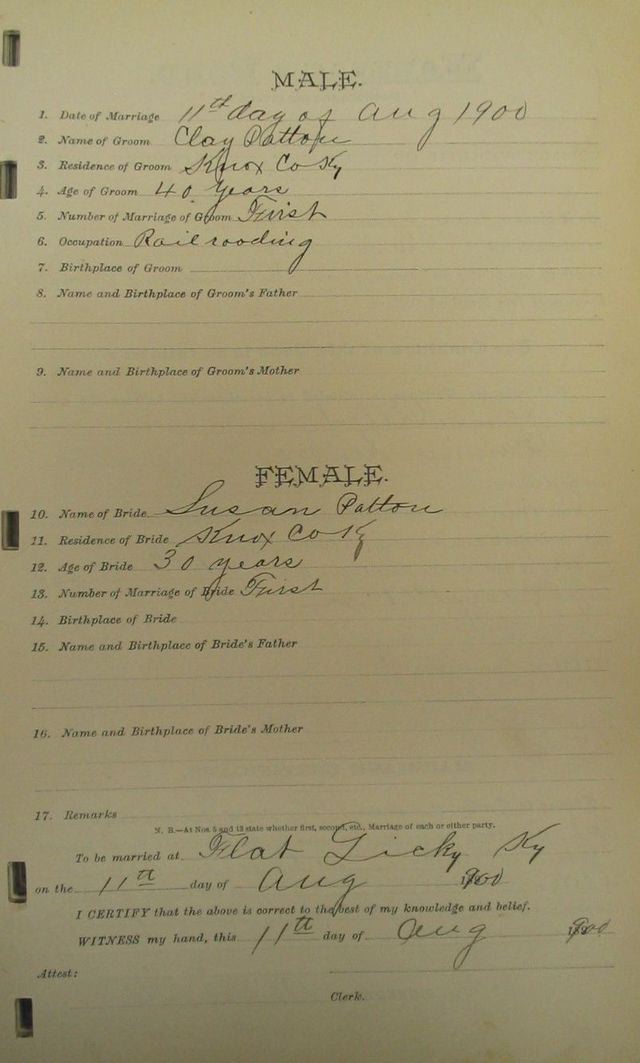 MALE.
1. Date of Marriage 11th day of Aug 1900
2. Name of Groom Clay Patton
3. Residence of Groom Knox Co Ky
4. Age of Groom 40 years
5. Number of Marriage of Groom First
6. Occupation Railroading
7. Birthplace of Groom
8. Name and Birthplace of Groom's Father
9. Name and Birthplace of Groom's Mother
FEMALE.
10. Name of Bride Susan Patton
11. Residence of Bride Knox Co Ky
12. Age of Bride 30 years
13. Number of Marriage of Bride First
14. Birthplace of Bride
15. Name and Birthplace of Bride's Father
16. Name and Birthplace of Bride's Mother
17. Remarks
N. B.—At Nos. 5 and 13 state whether first, second, etc., Marriage of each or either party.
To be married at Flat Licky Ky
on the 11th day of Aug 1900
I CERTIFY that the above is correct to the best of my knowledge and belief.
WITNESS my hand, this 11th day of Aug 1900
Attest:
Clerk.